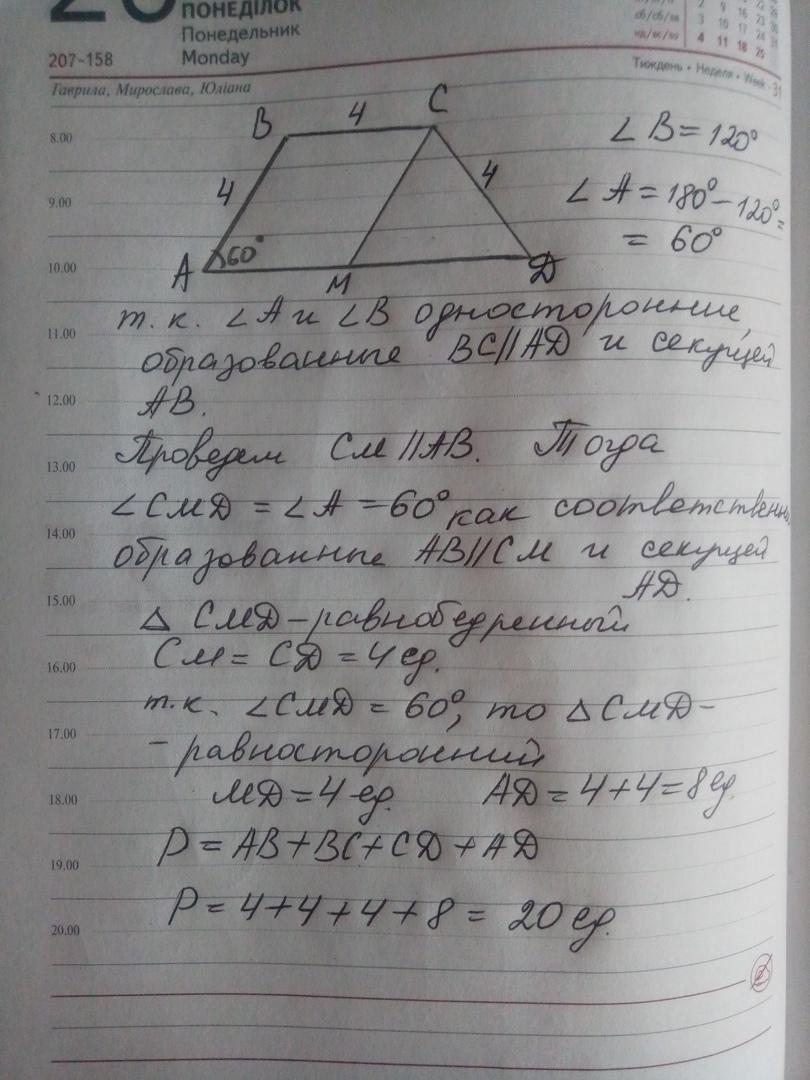 ПОНЕДІЛОК
Понедельник
207-158 Monday
Тиждень • Неделя • Week - 31
Гаврила, Мирослава, Юліана
сб/сб/sa 2 9 16 23
нд/вс/su 3 10 17 24
4 11 18 25
8.00
9.00
10.00
11.00
12.00
13.00
14.00
15.00
16.00
17.00
18.00
19.00
20.00
B 4 C
4 4
A 60° M D
∠B = 120°
∠A = 180° - 120° =
= 60°
т. к. ∠A и ∠B односторонние,
образованные BC//AD и секущей
AB.
Проведем CM//AB. Тогда
∠CMD = ∠A = 60° как соответственн
образованные AB//CM и секущей
AD.
△ CMD - равнобедренный
CM = CD = 4 ед.
т.к. ∠CMD = 60°, то △CMD -
- равносторонний
MD = 4 ед. AD = 4+4 = 8 ед.
P = AB + BC + CD + AD
P = 4+4+4+8 = 20 ед.